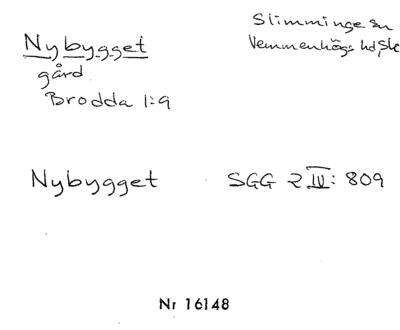 Nybygget
gård
Brodda 1:9
Slimminge sn
Vemmenhögs hd, Sk
Nybygget SGG 2 IV: 809
Nr 16148